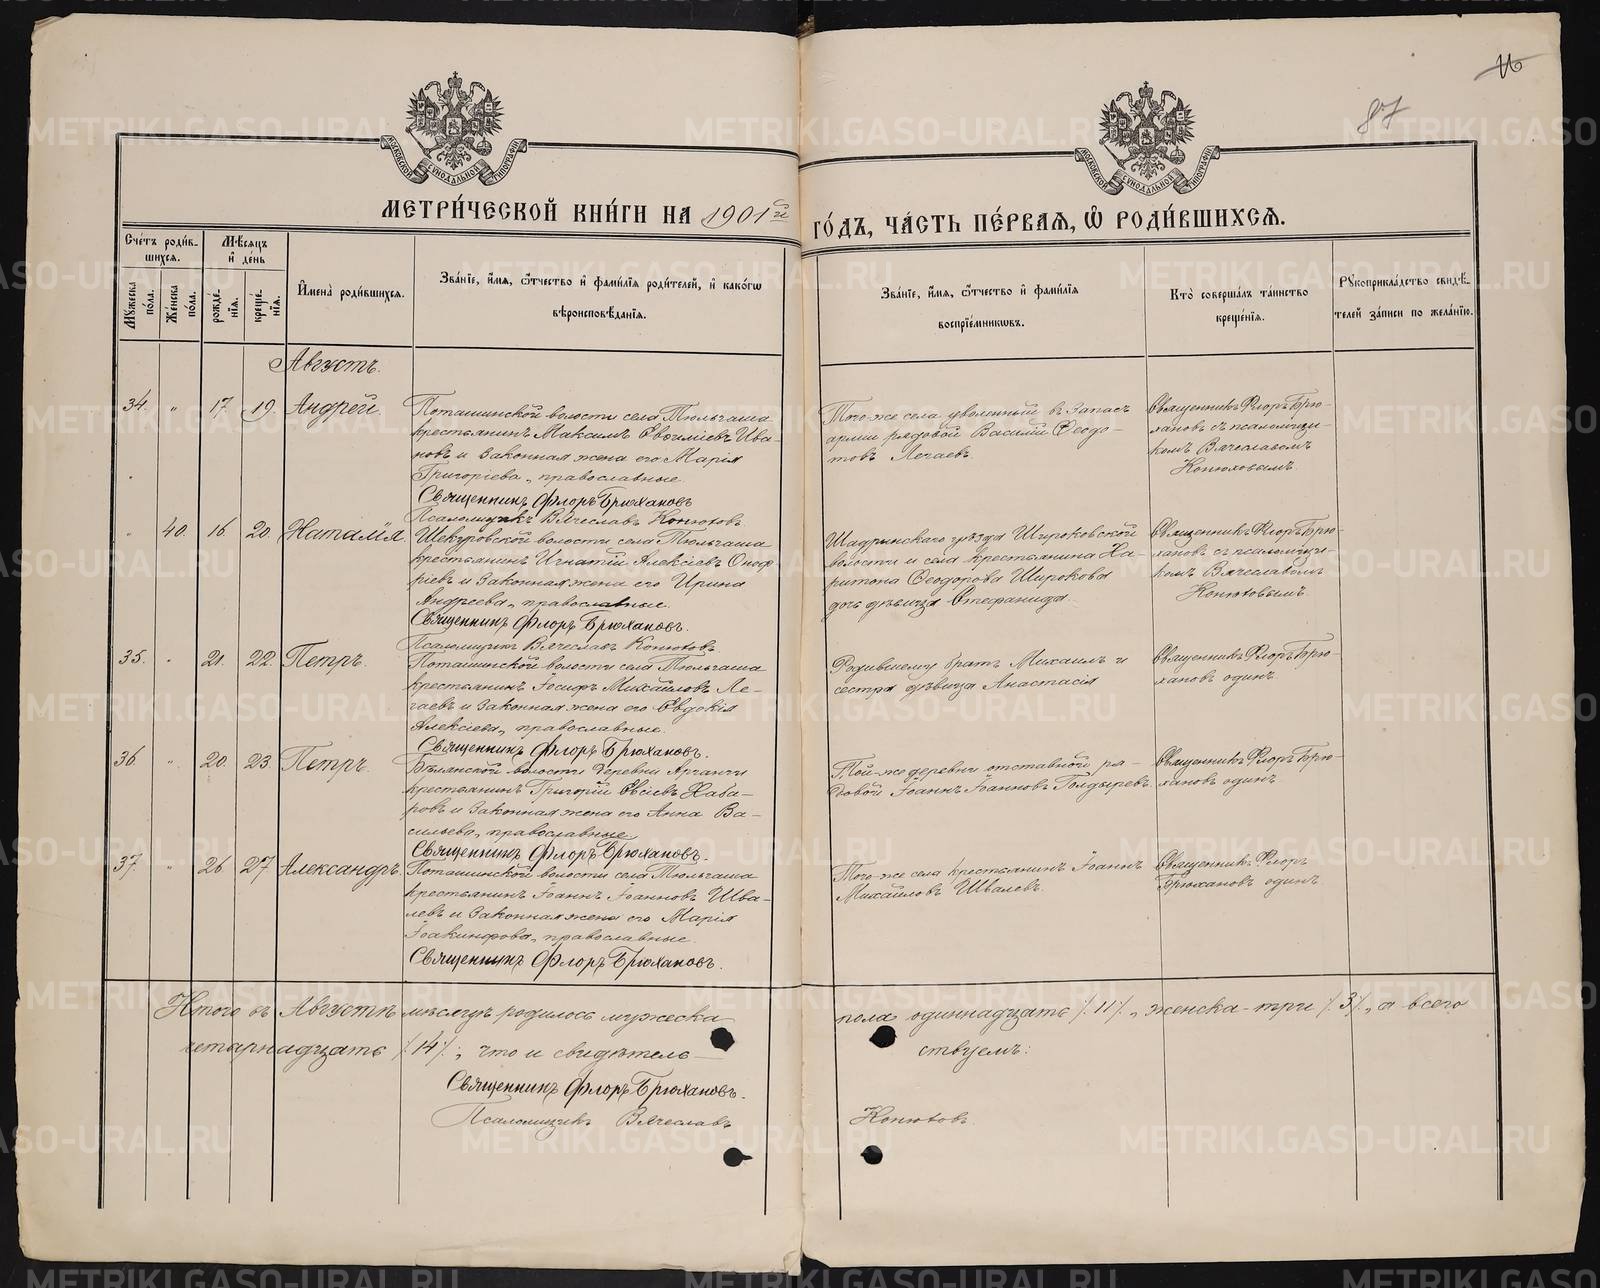 87
МОСКОВСКОЙ СѴНОДАЛЬНОЙ ТИПОГРАФІИ
МОСКОВСКОЙ СѴНОДАЛЬНОЙ ТИПОГРАФІИ
МЕТРИ́ЧЕСКОЙ КНИ́ГИ НА 1901й ГО́ДЪ, ЧА́СТЬ ПЕ́РВАЯ, Ѽ РОДИ́ВШИХСЯ.
Сче́тъ роди́в-
шихся.
Мꙋ́жеска по́ла.
Же́нска по́ла.
Мѣ́сяцъ
и҆ де́нь
рожде́-
нїѧ.
креще́-
нїѧ.
И҆мена̀ роди́вшихсѧ.
Зва́нїе, и҆́мѧ, ѻ҆́тчество и҆ фами́лїѧ роди́телей, и҆ како́гѡ
вѣроисповѣ́данїѧ.
Зва́нїе, и҆́мѧ, ѻ҆́тчество и҆ фами́лїѧ
воспрїе́мникѡвъ.
Кто̀ соверша́лъ та́инство
креще́нїѧ.
Рꙋкоприкла́дство свидѣ́-
телей за́писи по жела́нїю.
Августъ.
34. " 17. 19. Андрей.
Поташинской волости села Тюльгаша
крестьянинъ Максимъ Евѳиміевъ Ива-
новъ и законная жена его Марія
Григоріева, православные.
Священникъ Флоръ Брюхановъ
Псаломщикъ Вячеславъ Конюховъ.
Того-же села уволенный въ запасъ
арміи рядовой Василій Ѳеодо-
товъ Легаевъ
Священникъ Флоръ Брю-
хановъ съ псаломщи-
комъ Вячеславомъ
Конюховымъ.
" 40. 16. 20. Наталія
Шокуровской волости села Тюльгаша
крестьянинъ Игнатій Алексіевъ Оноф-
ріевъ и законная жена его Ирина
Андреева, православные.
Священникъ Флоръ Брюхановъ.
Псаломщикъ Вячеславъ Конюховъ.
Шадринскаго уѣзда Широковской
волости и села крестьянина Ха-
ритона Ѳеодорова Широкова
дочь дѣвица Стефанида.
Священникъ Флоръ Брю-
хановъ съ псаломщи-
комъ Вячеславомъ
Конюховымъ.
35. " 21. 22. Петръ.
Поташинской волости села Тюльгаша
крестьянинъ Іосифъ Михайловъ Ле-
гаевъ и законная жена его Евдокія
Алексіева, православные.
Священникъ Флоръ Брюхановъ.
Родившему братъ Михаилъ и
сестра дѣвица Анастасія
Священникъ Флоръ Брю-
хановъ одинъ.
36. " 20. 23. Петръ.
волости деревни
крестьянинъ Григорій Евсіевъ Хаба-
ровъ и законная жена его Анна Ва-
сильева, православные
Священникъ Флоръ Брюхановъ.
Той-же деревни отставной ря-
довой Іоаннъ Іоанновъ Болдыревъ.
Священникъ Флоръ Брю-
хановъ одинъ
37. " 26 27 Александръ.
Поташинской волости села Тюльгаша
крестьянинъ Іоаннъ Іоанновъ Шва-
левъ и законная жена его Марія
Іоакинфова, православные.
Священникъ Флоръ Брюхановъ.
Того-же села крестьянинъ Іоаннъ
Михайловъ Швалевъ.
Священникъ Флоръ
Брюхановъ одинъ
Итого въ Августѣ мѣсяцѣ родилось мужеска пола одиннадцать /.11/., женска-три /.3/., а всего
четырнадцать /.14/., что и свидѣтель- ствуемъ:
Священникъ Флоръ Брюхановъ.
Псаломщикъ Вячеславъ Конюховъ.
METRIKI.GASO-URAL.RU